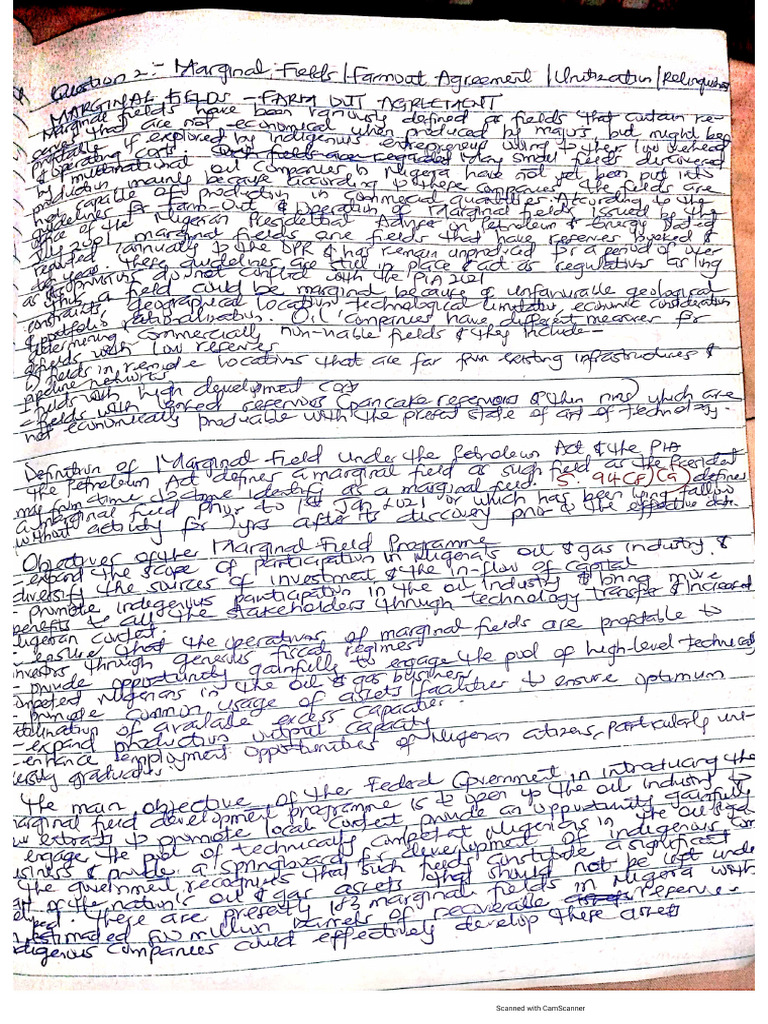 Question 2:- Marginal Fields / Farmout Agreement / Unitization / Relinquish
MARGINAL FIELDS - FARM OUT AGREEMENT
Marginal fields have been variously defined as fields that contain re-
serves that are not economical when produced by majors, but might be
profitable if explored by indigenous entrepreneur owing to their low overhead
& operating costs. Such fields are regarded Many small fields discovered
by multinational oil companies in Nigeria have not yet been put into
production mainly because according to these companies the fields are
not capable of production in commercial quantities. According to the
guidelines for Farm-Out & Operation of Marginal fields issued by the
office of the Nigerian Presidential Adviser on Petroleum & Energy dated
July 2001 marginal fields are fields that have reserves booked &
reported annually to the DPR & has remain unproduced for a period of over
10 year. These guidelines are still in place & act as regulations as long
as its provisions do not conflict with the PIA 2021
Thus a field could be marginal because of unfavourable geological
constraints geographical location technological limitation, economic consideration
& portfolio rationalisation. Oil companies have different measure for
determining commercially non-viable fields & they include -
fields with low reserves
fields in remote locations that are far from existing infrastructures &
pipeline networks
- fields with high development cost
- fields with reserves (pancake reservoirs & thin rims) which are
not economically producable with the present state of art of technology.
Definition of Marginal Field under the Petroleum Act & the PIA
The Petroleum Act defines a marginal field as such field as the President
may from time to time identify as a marginal field. S. 94(8)(9) defines
a marginal field prior to 1st Jan 2021 or which has been lying fallow
without activity for 7yrs after its discovery prior to the effective date.
Objectives of the Marginal Field Programme
- expand the scope of participation in Nigeria's oil & gas industry &
diversify the sources of investment & the in-flow of capital
- promote indigenous participation in the oil industry & bring more
benefits to all the stakeholders through technology transfer & increased
Nigerian content.
- ensure that the operations of marginal fields are profitable to
investors through generous fiscal regimes
- provide opportunity gainfully to engage the pool of high-level technically
competent Nigerians in the oil & gas business
- promote common usage of assets/facilities to ensure optimum
utilization of available excess capacities.
- expand production output capacity
- enhance employment opportunities of Nigerian citizens, particularly uni-
versity graduates.
The main objective of the Federal Government in introducing the
marginal field development programme is to open up the oil industry to
new extrants to promote local content provide an opportunity gainfully
engage the pool of technically competent Nigerians in the oil & gas
business & provide a springboard for development of indigenous
The government recognizes that such fields constitute a significant
part of the nation's oil & gas assets that should not be left unde
veloped. There are presently 183 marginal fields in Nigeria with
an estimated 500 million barrels of recoverable reserve.
Indigenous companies could effectively develop these assets
Scanned with CamScanner